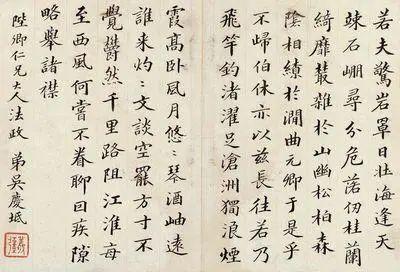 若夫驚岩罩日壮海逢天
竦石崩尋分危落仞桂蘭
綺靡叢雜於山幽松柏森
陰相繚於澗曲元卿于是乎
不歸伯休亦以茲長往若乃
飛竿釣渚濯足滄洲獨浪煙
霞高卧風月悠〻琴酒岫遠
誰来灼〻文談空罷方寸不
覺鬱然千里路阻江淮每
至西風何嘗不眷聊囙疾隙
略舉諸襟
陛卿仁兄大人法政 弟吳慶坻